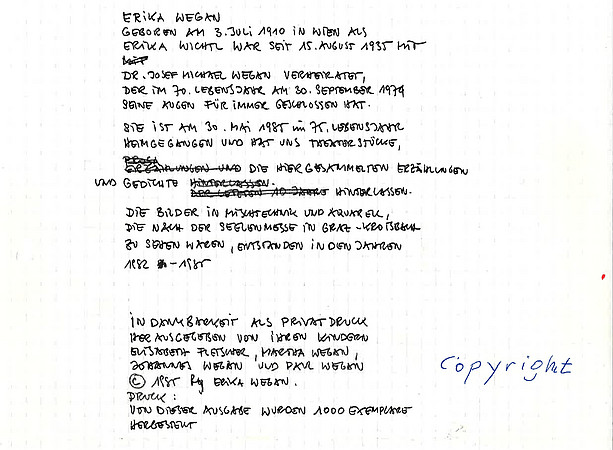 ERIKA WEGAN
GEBOREN AM 3. JULI 1910 IN WIEN ALS
ERIKA WICHTL WAR SEIT 15. AUGUST 1935 MIT
MIT
DR. JOSEF MICHAEL WEGAN VERHEIRATET,
DER IM 70. LEBENSJAHR AM 30. SEPTEMBER 1974
SEINE AUGEN FÜR IMMER GESCHLOSSEN HAT.
SIE IST AM 30. MAI 1985 im 75. LEBENSJAHR
HEIMGEGANGEN UND HAT UNS THEATERSTÜCKE,
PROSA
ERZÄHLUNGEN UND DIE HIER GESAMMELTEN ERZÄHLUNGEN
UND GEDICHTE HINTERLASSEN.
DER LETZTEN 10 JAHRE HINTERLASSEN.
DIE BILDER IN MISCHTECHNIK UND AQUARELL,
DIE NACH DER SEELENMESSE IN GRAZ-KROISBACH
ZU SEHEN WAREN, ENTSTANDEN IN DEN JAHREN
1982 - 1985
IN DANKBARKEIT ALS PRIVATDRUCK
HERAUSGEGEBEN VON IHREN KINDERN
ELISABETH FLEISCHER, MARTHA WEGAN,
JOHANNES WEGAN UND PAUL WEGAN
© 1985 By ERIKA WEGAN.
DRUCK:
VON DIESER AUSGABE WURDEN 1000 EXEMPLARE
HERGESTELLT
Copyright